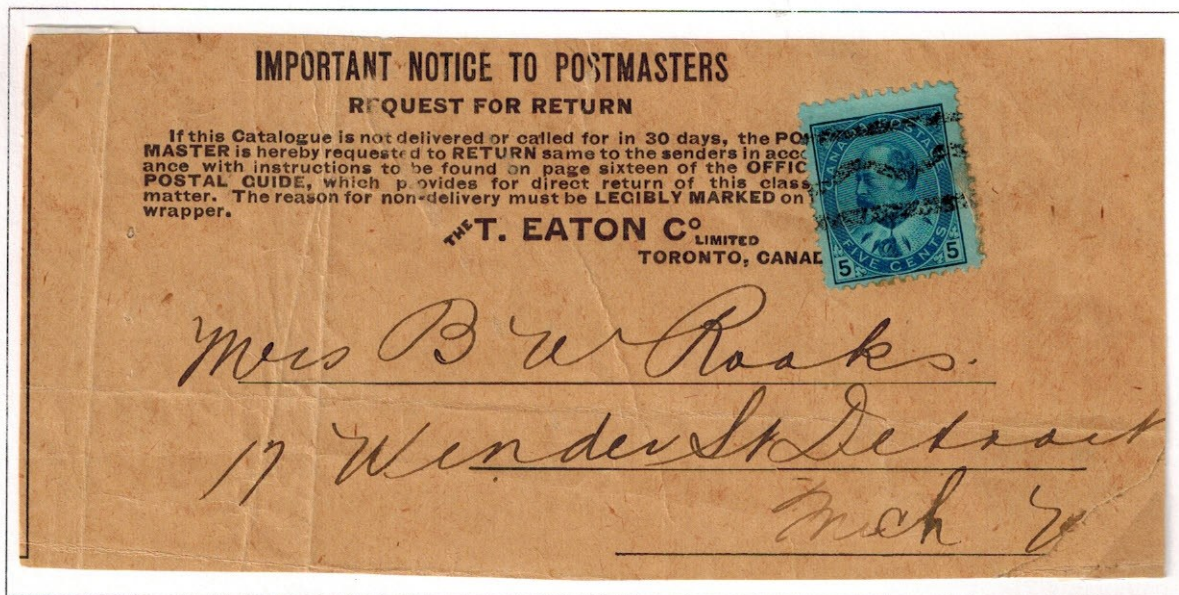 IMPORTANT NOTICE TO POSTMASTERS
REQUEST FOR RETURN
If this Catalogue is not delivered or called for in 30 days, the PO
MASTER is hereby requested to RETURN same to the senders in acc
ance with instructions to be found on page sixteen of the OFFIC
POSTAL GUIDE, which provides for direct return of this class
matter. The reason for non-delivery must be LEGIBLY MARKED on
wrapper.
THE T. EATON Co LIMITED
TORONTO, CANAD
CANADA POSTAGE
FIVE CENTS
5 5
Mrs B W Rooks.
17 Winder St Detroit
Mich